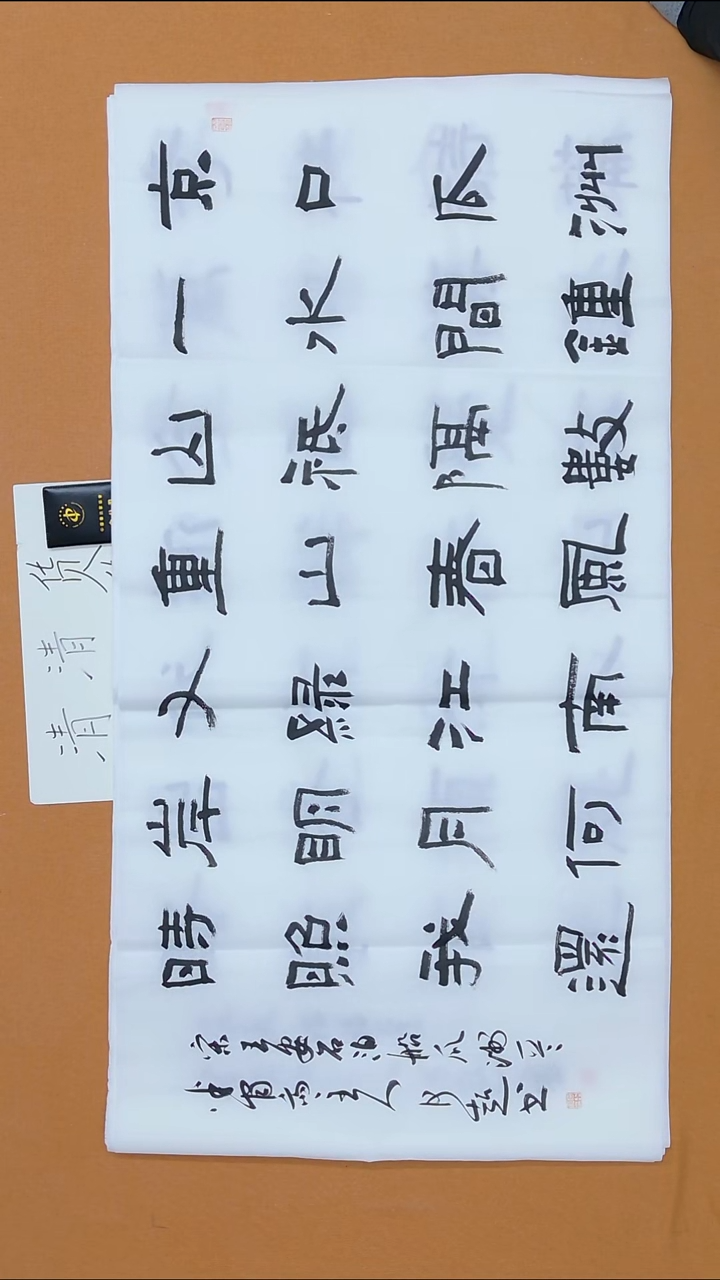 京口瓜洲
一水間鍾
山祗隔數
重山春風
又綠江南
岸明月何
時照我還
宋王安石泊船瓜洲
清清货